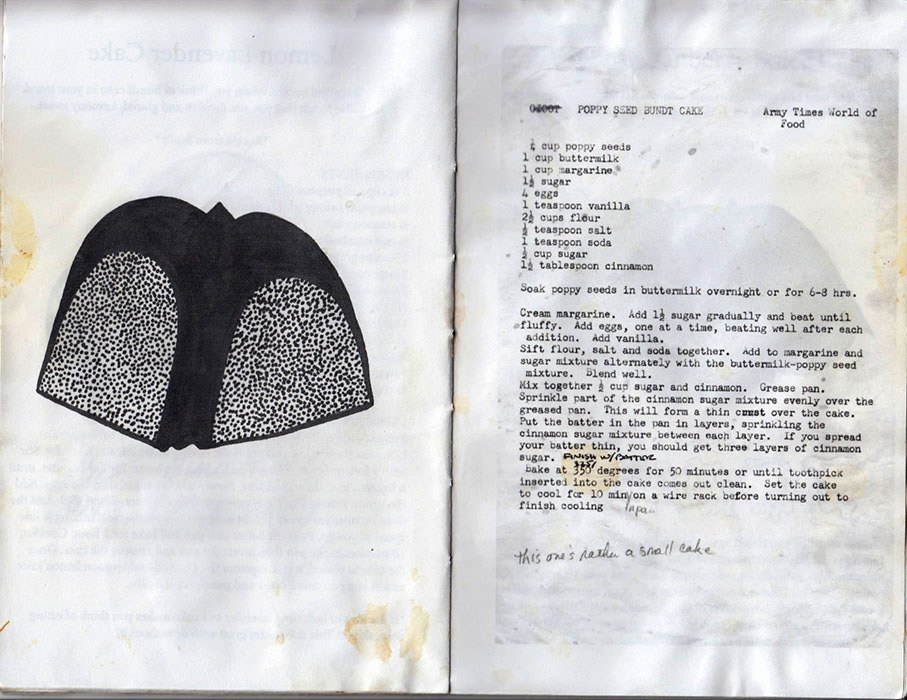 POPPY SEED BUNDT CAKE Army Times World of
Food
cup poppy seeds
1 cup buttermilk
1 cup margarine
1½ sugar
4 eggs
1 teaspoon vanilla
2½ cups flour
½ teaspoon salt
1 teaspoon soda
½ cup sugar
1½ tablespoon cinnamon
Soak poppy seeds in buttermilk overnight or for 6-8 hrs.
Cream margarine. Add 1½ sugar gradually and beat until
fluffy. Add eggs, one at a time, beating well after each
addition. Add vanilla.
Sift flour, salt and soda together. Add to margarine and
sugar mixture alternately with the buttermilk-poppy seed
mixture. Blend well.
Mix together ½ cup sugar and cinnamon. Grease pan.
Sprinkle part of the cinnamon sugar mixture evenly over the
greased pan. This will form a thin crust over the cake.
Put the batter in the pan in layers, sprinkling the
cinnamon sugar mixture between each layer. If you spread
your batter thin, you should get three layers of cinnamon
sugar. FINISH W/BATTER
325/
Bake at 350 degrees for 50 minutes or until toothpick
inserted into the cake comes out clean. Set the cake
to cool for 10 min/on a wire rack before turning out to
finish cooling in pan
this one's rather a small cake